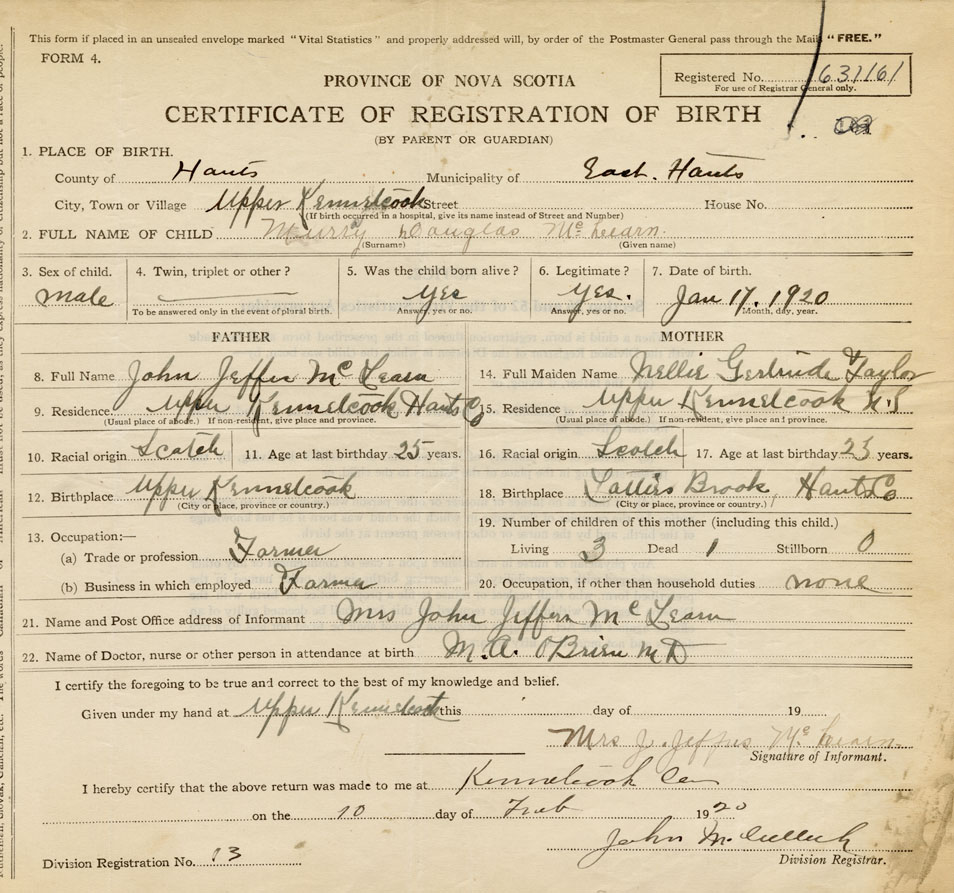 This form if placed in an unsealed envelope marked "Vital Statistics" and properly addressed will, by order of the Postmaster General pass through the Mail "FREE."
FORM 4.
PROVINCE OF NOVA SCOTIA
Registered No. 631161
For use of Registrar General only.
CERTIFICATE OF REGISTRATION OF BIRTH
(BY PARENT OR GUARDIAN)
1. PLACE OF BIRTH.
County of Hants Municipality of East. Hants
City, Town or Village Upper Kennetcook Street House No.
(If birth occurred in a hospital, give its name instead of Street and Number)
2. FULL NAME OF CHILD Murry Douglas Mc Learn.
(Surname) (Given name)
3. Sex of child. 4. Twin, triplet or other? 5. Was the child born alive? 6. Legitimate? 7. Date of birth.
male yes yes. Jan 17, 1920
To be answered only in the event of plural birth. Answer, yes or no. Answer, yes or no. Month, day, year.
FATHER MOTHER
8. Full Name John Jeffers Mc Learn 14. Full Maiden Name Nellie Gertrude Taylor
9. Residence. Upper Kennetcook Hants Co 15. Residence Upper Kennetcook N.S
(Usual place of abode.) If non-resident, give place and province. (Usual place of abode.) If non-resident, give place and province.
10. Racial origin Scotch 11. Age at last birthday 25 years. 16. Racial origin Scotch 17. Age at last birthday 23 years.
12. Birthplace Upper Kennetcook 18. Birthplace Latties Brook, Hants Co
(City or place, province or country.) (City or place, province or country.)
13. Occupation:— 19. Number of children of this mother (including this child.)
(a) Trade or profession Farmer Living 3 Dead 1 Stillborn 0
(b) Business in which employed Farmer 20. Occupation, if other than household duties none
21. Name and Post Office address of Informant Mrs John Jeffers Mc Learn
22. Name of Doctor, nurse or other person in attendance at birth M.A. O'Brien MD
I certify the foregoing to be true and correct to the best of my knowledge and belief.
Given under my hand at Upper Kennetcook this day of 19
Mrs J. Jeffers Mc Learn.
Signature of Informant.
I hereby certify that the above return was made to me at Kennetcook
on the 10 day of Feb 1920
John McCulloch
Division Registration No. 13 Division Registrar.